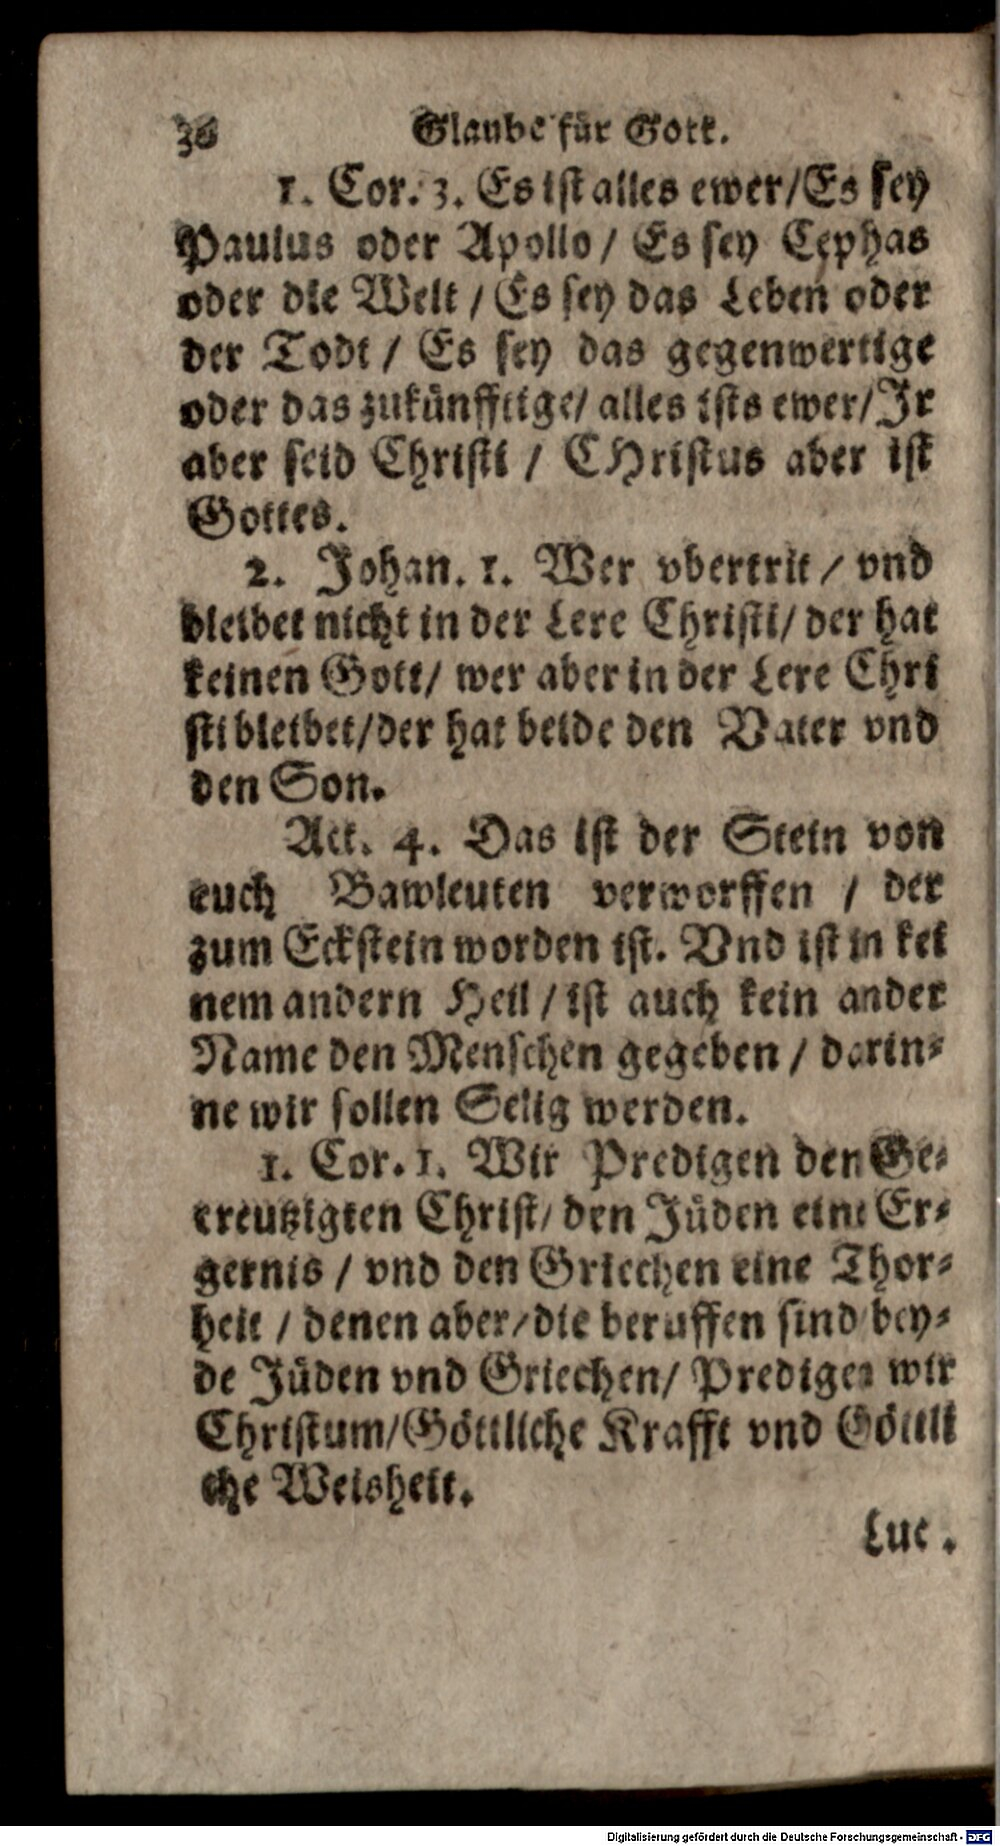 30 Glaube für Gott.
1. Cor. 3. Es ist alles ewer/Es sey
Paulus oder Apollo / Es sey Cephas
oder die Welt / Es sey das Leben oder
der Todt / Es sey das gegenwertige
oder das zukünfftige/ alles ists ewer/Ir
aber seid Christi / CHristus aber ist
Gottes.
2. Johan. 1. Wer vbertrit / vnd
bleibet nicht in der Lere Christi/ der hat
keinen Gott/ wer aber in der Lere Chri
sti bleibet/der hat beide den Vater vnd
den Son.
Act. 4. Das ist der Stein von
euch Bawleuten verworffen / der
zum Eckstein worden ist. Vnd ist in kei
nem andern Heil / ist auch kein ander
Name den Menschen gegeben / darin-
ne wir sollen Selig werden.
1. Cor. 1. Wir Predigen den Ge-
creutzigten Christ/ den Jüden eine Er-
gernis / vnd den Griechen eine Thor-
heit / denen aber/die beruffen sind bey-
de Jüden vnd Griechen/ Predigen wir
Christum/Göttliche Krafft vnd Göttli
che Weisheit.
Luc.
Digitalisierung gefördert durch die Deutsche Forschungsgemeinschaft - DFG